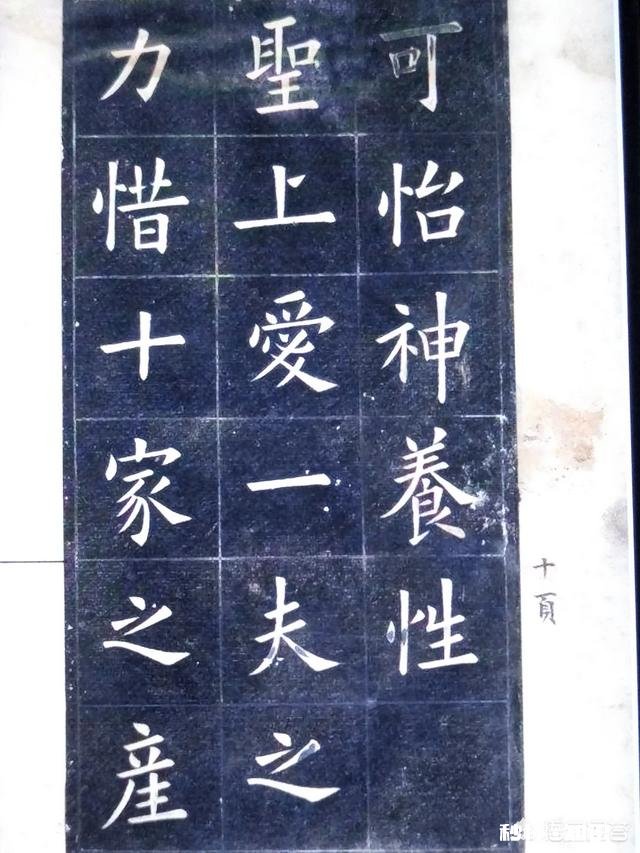 可怡神養性
聖上愛一夫之
力惜十家之産
十頁